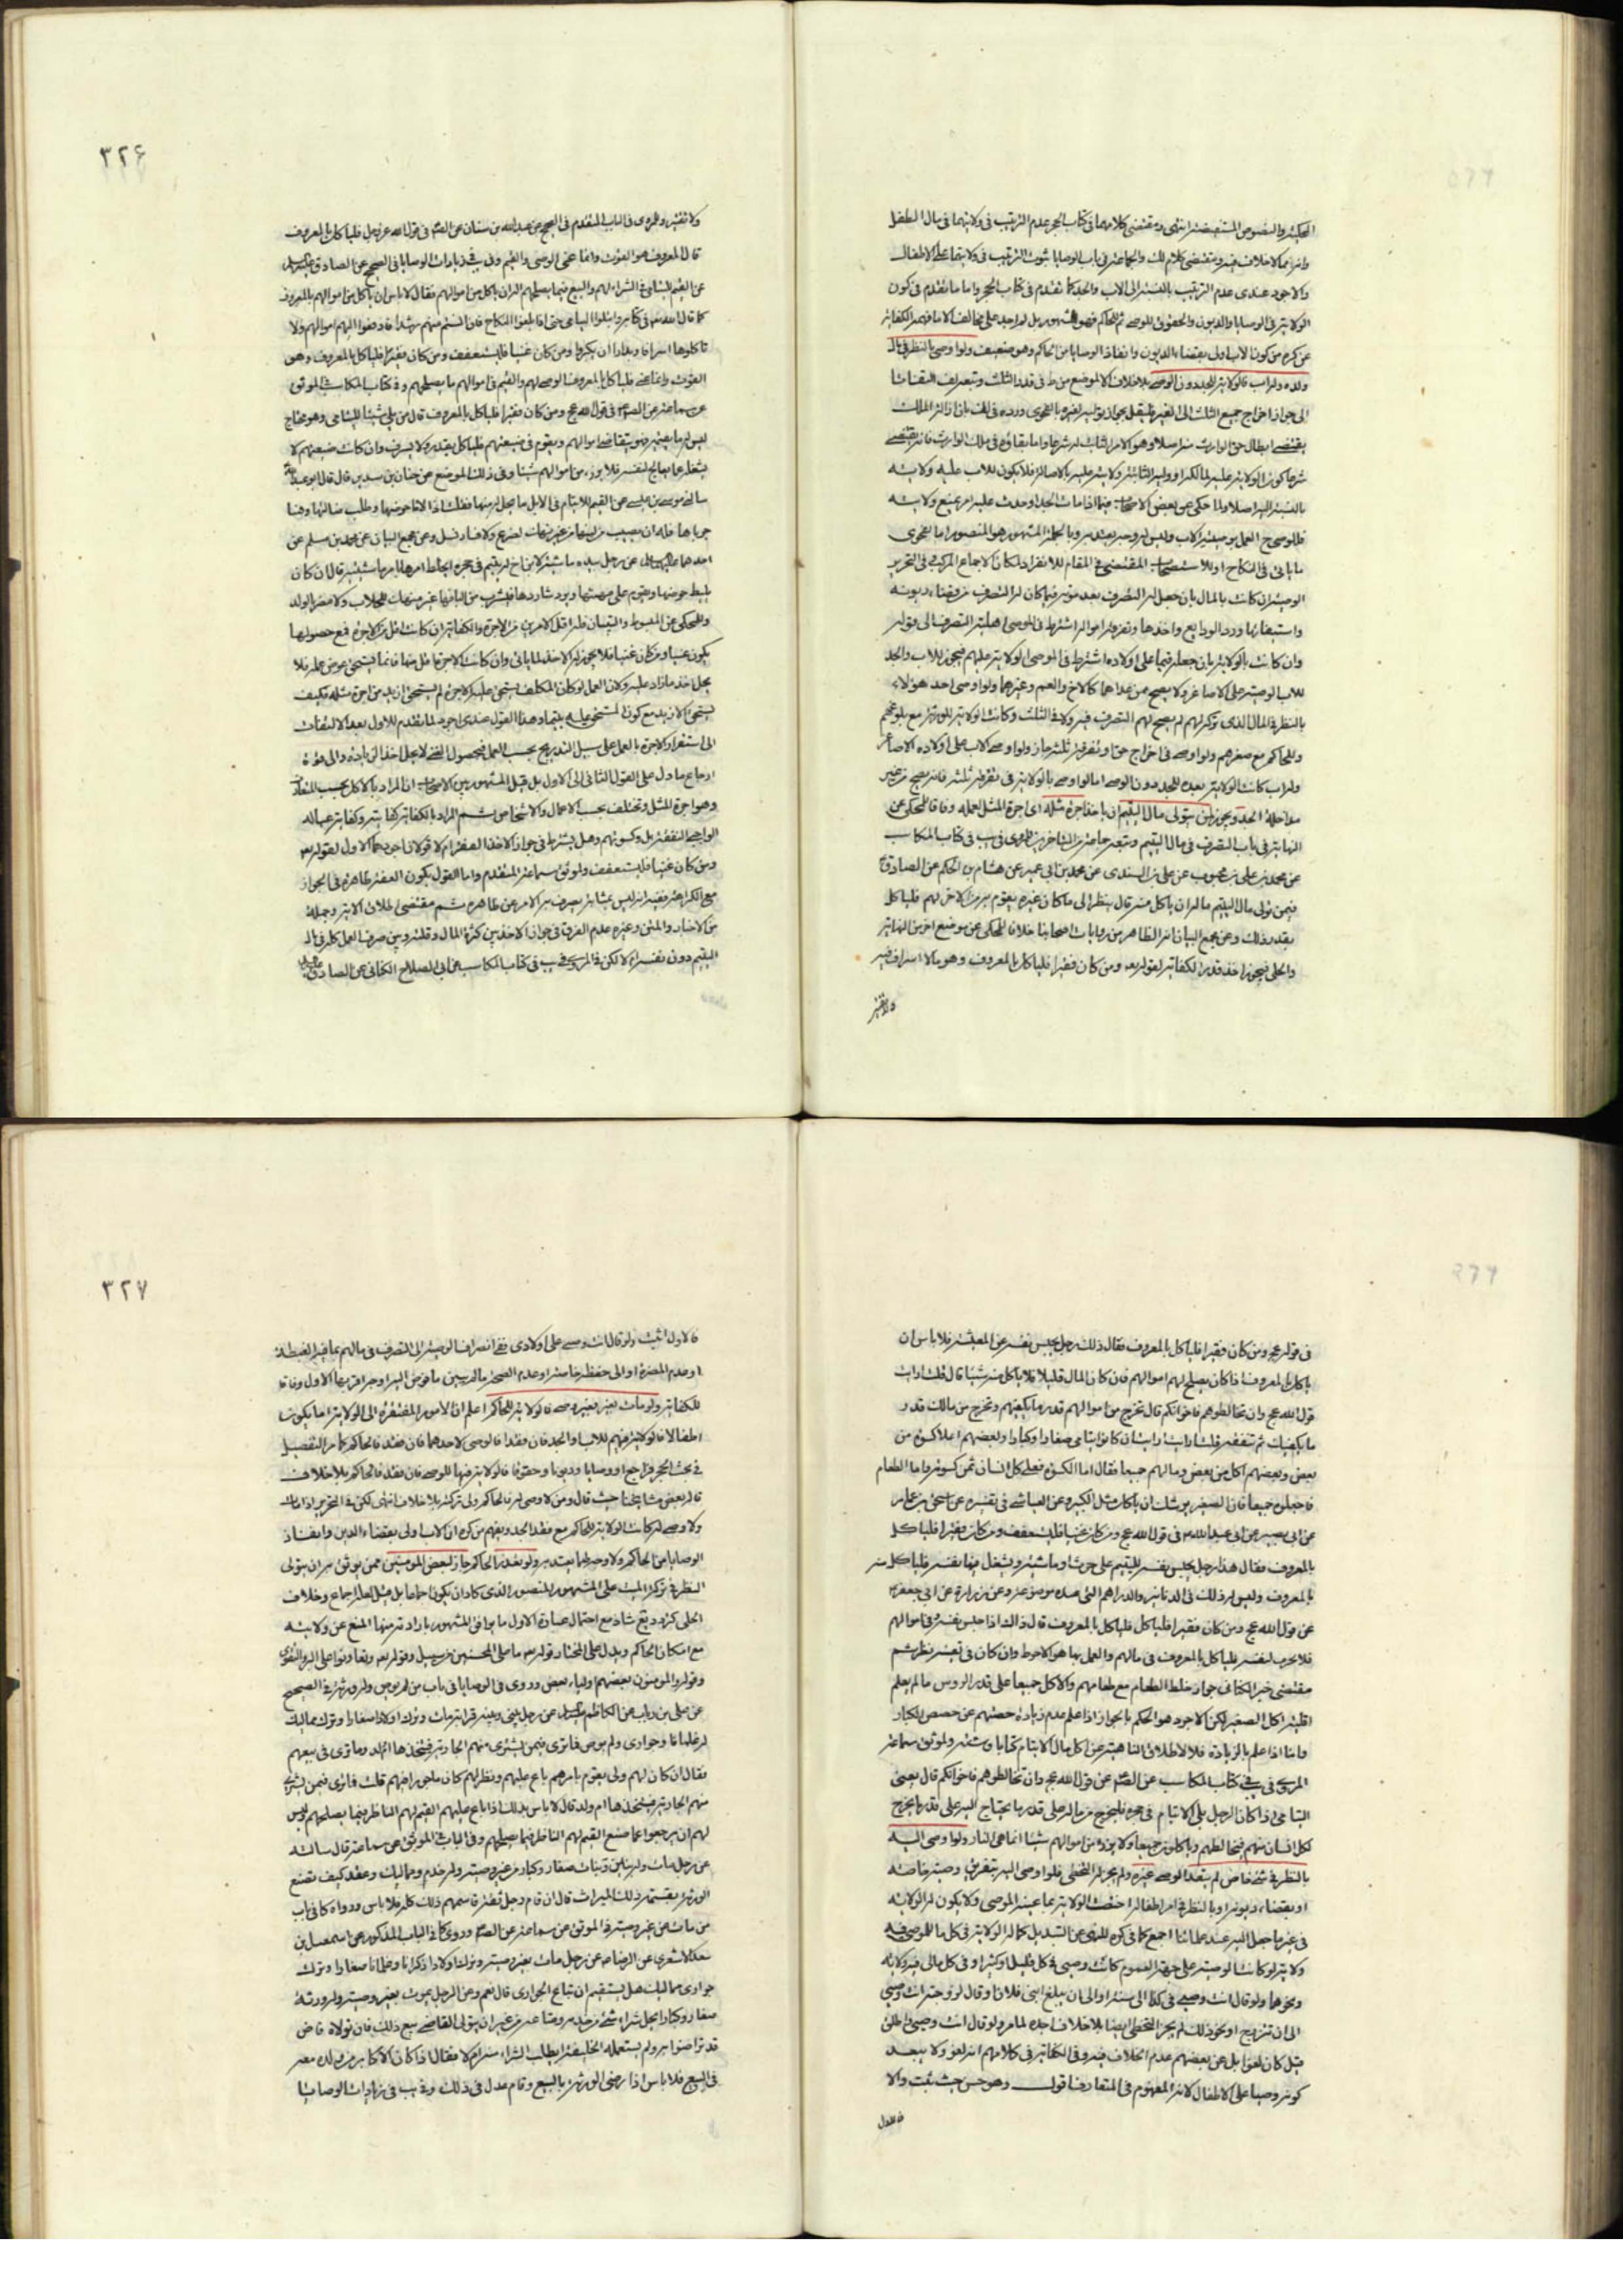 المحكية والنصوص المستفيضة انتهى ومقتضى كلامهما فى كتاب الحجر عدم الترتيب فى ولايتهما فى مال الطفل
وانه مما لا خلاف فيه ومقتضى كلام لك والجماعة فى باب الوصايا ثبوت الترتيب فى ولايتها على الاطفال
والاجود عندى عدم الترتيب بالنسبة الى الاب والجد كما تقدم فى كتاب الحجر واما ما تقدم فى كون
الولاية فى الوصايا والديون والحقوق للوصى ثم للحاكم فهو المشهور بل لم اجد على مخالف الا ما فى الكفاية
عن كره من كون الاب اولى بقضاء الديون وانفاذ الوصايا من الحاكم وهو ضعيف ولو اوصى بالنظر فى مال
ولده وله اب فالولاية للجد دون الوصى بلا خلاف
الى جواز اخراج جميع الثلث الى الغير
بقتضى ابطال حق الوارث منه اصلا وهو كالامر الثابت له شرعا واما بقاؤه فى ملك الوارث فانه يقتضى
شرعا كون الولاية عليه لمالكه او وليه الثابتة ولايته عليه بالاصالة فلا يكون للاب عليه ولاية
بالنسبة اليه اصلا ولما حكى عن بعض الاصحاب فيما اذا مات الجد او حدث عليه امر يمنع ولايته
فللوصى ح العمل بوصية الاب وليس له وجه يعتد به وبالجملة المشهور هو المنصور اما لفحوى
ما ياتى فى النكاح او للاستصحاب المقتضى فى المقام للانفراد لمكان الاجماع المركب فى التحرير
الوصية ان كانت بالمال بان جعل له التصرف بعد موته فيما كان له التصرف من قضاء ديونه
واستيفائها ورد الودايع واخذها وتفرقة امواله اشترط فى الموصى اهلية التصرف الى قوله
وان كانت بالولاية بان جعله قيما على اولاده اشترط فى الموصى الولاية عليهم فيجوز للاب والجد
للاب الوصية على الاصاغر ولا يصح ممن عداهما كالاخ والعم وغيرهما ولو اوصى احد هؤلاء
بالنظر فى المال الذى تركه لهم لم يصح لهم التصرف فيه ولا فى الثلث وكانت الولاية للورثة مع بلوغهم
وللحاكم مع صغرهم ولو اوصى فى اخراج حق او تفرقة ثلثه جاز ولو اوصى كلاب على اولاده الاصاغر
وله اب كانت الولاية بعده للجد دون الوصى اما لو اوصى بالولاية فى تفرقة ثلثه فانه يصح من غير
مداخلة الجد ويجوز لمن يتولى مال اليتيم ان ياخذ اجرة مثله اى اجرة المثل لعمله وفاقا للمحكى عن
النهاية فى باب التصرف فى مال اليتيم وتبعه جماعة من المتاخرين للمروى فى يب فى كتاب المكاسب
عن محمد بن على بن محبوب عن على بن السندى عن محمد بن ابى عمير عن هشام بن الحكم عن الصادق ع
فيمن تولى مال اليتيم ماله ان ياكل منه قال ينظر الى ما كان غيره يقوم به من الاجر لهم فلياكل
بقدر ذلك وعن مجمع البيان انه الظاهر من روايات اصحابنا خلافا للمحكى عن موضع اخر من النهاية
والحلى فيجوز اخذ قدر الكفاية لقوله تعه ومن كان فقيرا فلياكل بالمعروف وهو ما لا اسراف فيه
ولا تقتير
٣٢۶
ولا تقتير والمروى فى الباب المتقدم فى الصحيح عن عبد الله بن سنان عن الصم فى قول الله عز وجل فلياكل بالمعروف
قال المعروف هو القوت وانما عنى الوصى والقيم وفى يب فى زيادات الوصايا فى الصحيح عن الصادق عليه السلم
عن القيم لليتامى فى الشراء لهم والبيع فيما يصلحهم اله ان ياكل من اموالهم فقال لا باس ان ياكل من اموالهم بالمعروف
كما قال الله تعه فى كتابه وابتلوا اليتامى حتى اذا بلغوا النكاح فان انستم منهم رشدا فادفعوا اليهم اموالهم ولا
تاكلوها اسرافا وبدارا ان يكبروا ومن كان غنيا فليستعفف ومن كان فقيرا فلياكل بالمعروف وهو
القوت وانما عنى فلياكل بالمعروف الوصى لهم والقيم فى اموالهم ما يصلحهم وفى كتاب المكاسب الموثق
عن سماعة عن الصم فى قول الله عج ومن كان فقيرا فلياكل بالمعروف قال من يلى شيئا لليتامى وهو محتاج
ليس له ما يقيمه فهو يتقاضى اموالهم ويقوم فى ضيعتهم فلياكل بقدر ولا يسرف وان كانت ضيعتهم لا
يشغله عما يعالج لنفسه فلا يرزء من اموالهم شيئا وفى ذلك الموضع عن حنان بن سدير قال قال ابو عبد الله
سالنى موسى بن عيسى عن القيم للايتام فى الابل ما يحل له منها فقلت اذا لاط حوضها وطلب ضالتها وهنا
جرباها فله ان يصيب من لبنها من غير نهك لضرع ولا فساد لنسل وعن مجمع البيان عن محمد بن مسلم عن
احدهما عليهما السلم عن رجل بيده ماشية لابن اخ له يتيم فى حجره ايخلط امرها بامر ماشيته قال ان كان
يليط حوضها ويقوم على مهنتها ويرد شاردها فليشرب من البانها غير منهك للحلاب ولا مضر بالولد
وللمحكى عن المبسوط والتبيان فله اقل الامرين من الاجرة والكفاية ان كانت اقل من الاجرة فمع حصولها
يكون غنيا ومن كان غنيا فلا يجوز له الاخذ لما ياتى وان كانت الاجرة اقل منها فانما يستحق عوض عمله فلا
يحل اخذ ما زاد عليه ولان العمل لو كان المكلف يستحق عليه الاجرة لم يستحق ازيد من اجرة مثله فكيف
يستحق الازيد مع كون المستحق عليه يتيما وهذا القول عندى اجود لما تقدم للاول بعد الالتفات
الى استقرار الاجرة بالعمل على سبيل التدريج بحسب العمل فبحصول الغنى لا يحل اخذ الزيادة والى قوة
ارجاع ما دل على القول الثانى الى الاول بل قيل المشهور بين الاصحاب ان المراد بالاكل بحسب المتعارف
وهو اجرة المثل وتختلف بحسب الاعمال والاشخاص ثم المراد بالكفاية كفايته وكفاية عياله
الواجبى النفقة بل وكسوتهم وهل يشترط فى جواز الاخذ الفقر ام لا قولان اجودهما الاول لقوله تعه
ومن كان غنيا فليستعفف ولموثق سماعة المتقدم واما القول بكون العفة ظاهرة فى الجواز
مع الكراهة ففيه انه ليس بمثابة يصرف به الامر عن ظاهره ثم مقتضى اطلاق الاية وجملة
من الاخبار والمتن وغيره عدم الفرق فى جواز الاخذ بين كثرة المال وقلته وبين صرف العمل كله فى مال
اليتيم دون نفسه ام لا لكن فى المروى فى يب فى كتاب المكاسب عن ابى الصلاح الكنانى عن الصادق عليه السلم
فى قوله عج ومن كان فقيرا فلياكل بالمعروف فقال ذلك رجل يحبس نفسه عن المعيشة فلا باس ان
ياكل بالمعروف اذا كان يصلح لهم اموالهم فان كان المال قليلا فلا ياكل منه شيئا قال قلت ارايت
قول الله عج وان تخالطوهم فاخوانكم قال تخرج من اموالهم قدر ما يكفيهم وتخرج من مالك قدر
ما يكفيك ثم تنفقه قلت ارايت ان كانوا يتامى صغارا وكبارا وبعضهم اعلا كسوة من
بعض وبعضهم اكل من بعض ومالهم جميعا فقال اما الكسوة فعلى كل انسان ثمن كسوته واما الطعام
فاجعلوه جميعا فان الصغير يوشك ان ياكل مثل الكبير وعن العياشى فى تفسيره عن اسحق بن عمار
عن ابى بصير عن ابى عبد الله ع فى قول الله عج ومن كان غنيا فليستعفف ومن كان فقيرا فلياكل
بالمعروف فقال هذا رجل يحبس نفسه لليتيم على حرث او ماشية ويشغل فيها نفسه فلياكل منه
بالمعروف وليس له ذلك فى الدنانير والدراهم التى عنده موضوعة وعن زرارة عن ابى جعفر ع
عن قول الله عج ومن كان فقيرا فلياكل فلياكل بالمعروف قال ذاك اذا حبس نفسه فى اموالهم
فلا يحرث لنفسه فلياكل بالمعروف فى مالهم والعمل بها هو الاحوط وان كان فى تعينه نظر ثم
مقتضى خبر الكنانى جواز خلط الطعام مع طعامهم والاكل جميعا على قدر الرؤس ما لم يعلم
اقلية اكل الصغير لكن الاجود هو الحكم بالجواز اذا علم عدم زيادة حصتهم عن حصص الكبار
واما اذا علم بالزيادة فلا لاطلاق الناهية عن اكل مال الايتام كتابا وسنة ولموثق سماعة
المروى فى يب فى كتاب المكاسب عن الصم عن قول الله عج وان تخالطوهم فاخوانكم قال يعنى
اليتامى اذا كان الرجل يلى الايتام فى حجره فليخرج من ماله على قدر ما يحتاج اليه على قدر ما يخرج
لكل انسان منهم فيخالطهم وياكلون جميعا ولا يرزء من اموالهم شيئا انما هى النار ولو اوصى اليه
بالنظر فى شئ خاص لم يتعد الوصى غيره ولم يجز له التخطى فلو اوصى اليه بتفريق وصية خاصة
او بقضاء ديونه او بالنظر فى امر اطفاله اختصت الولاية بما عينه الموصى ولا يكون له الولاية
فى غير ما جعل اليه عند علمائنا اجمع كما فى كره للنهى عن التبديل كماله الولاية فى كل ما للموصى فيه
ولاية لو كانت الوصية على جهة العموم كانت وصيى فى كل قليل وكثير او فى كل مالى فيه ولاية
ونحوها ولو قال انت وصيى فى كذا الى سنة او الى ان يبلغ ابنى فلان او قال لزوجته انت وصيى
الى ان تتزوج او نحو ذلك لم يجز التخطى ايضا بلا خلاف اجده لما مر ولو قال انت وصيى واطلق
قيل كان لغوا بل عن بعضهم عدم الخلاف فيه وفى الكفاية فى كلامهم انه لغو ولا يبعد
كونه وصيا على الاطفال لانه المفهوم فى المتعارف اقول وهو حسن حيث ثبت والا
فالاول
٣٢٧
فالاول اثبت ولو قال انت وصيى على اولادى ففى انصراف الوصية الى التصرف فى مالهم بما فيه الغبطة
او عدم المضرة او الى حفظه خاصة او عدم الصحة ما لم يبين ما فوض اليه اوجه اقربها الاول وفاقا
للكفاية ولو مات بغير وصى فالولاية للحاكم اعلم ان الامور المفتقرة الى الولاية اما يكون
اطفالا فالولاية فيهم للاب والجد فان فقدا فالوصى لاحدهما فان فقد فالحاكم كما مر التفصيل
فى بحث الحجر فراجع او وصايا وديونا وحقوقا فالولاية فيها للوصى فان فقد فالحاكم بلا خلاف
قاله بعض مشايخنا حيث قال ومن لا وصى له فالحاكم ولى تركته بلا خلاف انتهى لكن فى التحرير اذا مات
ولا وصى له كانت الولاية للحاكم مع فقد الجد ويفهم من كره ان الاب اولى بقضاء الدين وانفاذ
الوصايا من الحاكم ولا وجه لهما يعتد به ولو تعذر الحاكم جاز لبعض المؤمنين ممن يوثق به ان يتولى
النظر فى تركة الميت على المشهور المنصور الذى كاد ان يكون اجماعا بل قيل لعله اجماع وخلاف
الحلى كتردد يع شاذ مع احتمال عبارة الاول ما يوافق المشهور بارادته منها المنع عن ولايته
مع امكان الحاكم ويدل على المختار قوله تعه ما على المحسنين من سبيل وقوله تعه وتعاونوا على البر والتقوى
وقوله والمؤمنون بعضهم اولياء بعض وروى فى الوصايا فى باب من لم يوص وله ورثة فى الصحيح
عن على بن رئاب عن الكاظم عليه السلم عن رجل بينى وبينه قرابة مات وترك اولادا صغارا وترك مماليك
له غلمانا وجوارى ولم يوص فما ترى فيمن يشترى منهم الجارية فيتخذها ام ولد وما ترى فى بيعهم
فقال ان كان لهم ولى يقوم بامرهم باع عليهم ونظر لهم كان ماجورا فيهم قلت فما ترى فيمن يشترى
منهم الجارية فيتخذها ام ولد قال لا باس بذلك اذا باع عليهم القيم لهم الناظر فيما يصلحهم وليس
لهم ان يرجعوا عما صنع القيم لهم الناظر فيما يصلحهم وفى الباب الموثق عن سماعة قال سالته
عن رجل مات وله بنين وبنات صغار وكبار من غير وصية وله خدم ومماليك وعقد كيف يصنع
الورثة بقسمة ذلك الميراث قال ان قام رجل ثقة قاسمهم ذلك كله فلا باس ورواه كا فى باب
من مات عن غير وصية فى الموثق عن سماعة عن الصم وروى كا فى الباب المذكور عن اسمعيل بن
سعد الاشعرى عن الرضا ع عن رجل مات بغير وصية وترك اولادا ذكرانا وغلمانا صغارا وترك
جوارى مماليك هل يستقيم ان تباع الجوارى قال نعم وعن الرجل يموت بغير وصية وله ورثة
صغار وكبار ايحل شراء شئ من خدمه ومتاعه من غير ان يتولى القاضى بيع ذلك فان تولاه قاض
قد تراضوا به ولم يستعمله الخليفة ايطيب الشراء منه ام لا فقال اذا كان الاكابر من ولده معه
فى البيع فلا باس اذا رضى الورثة بالبيع وقام عدل فى ذلك وفى يب فى زيادات الوصايا